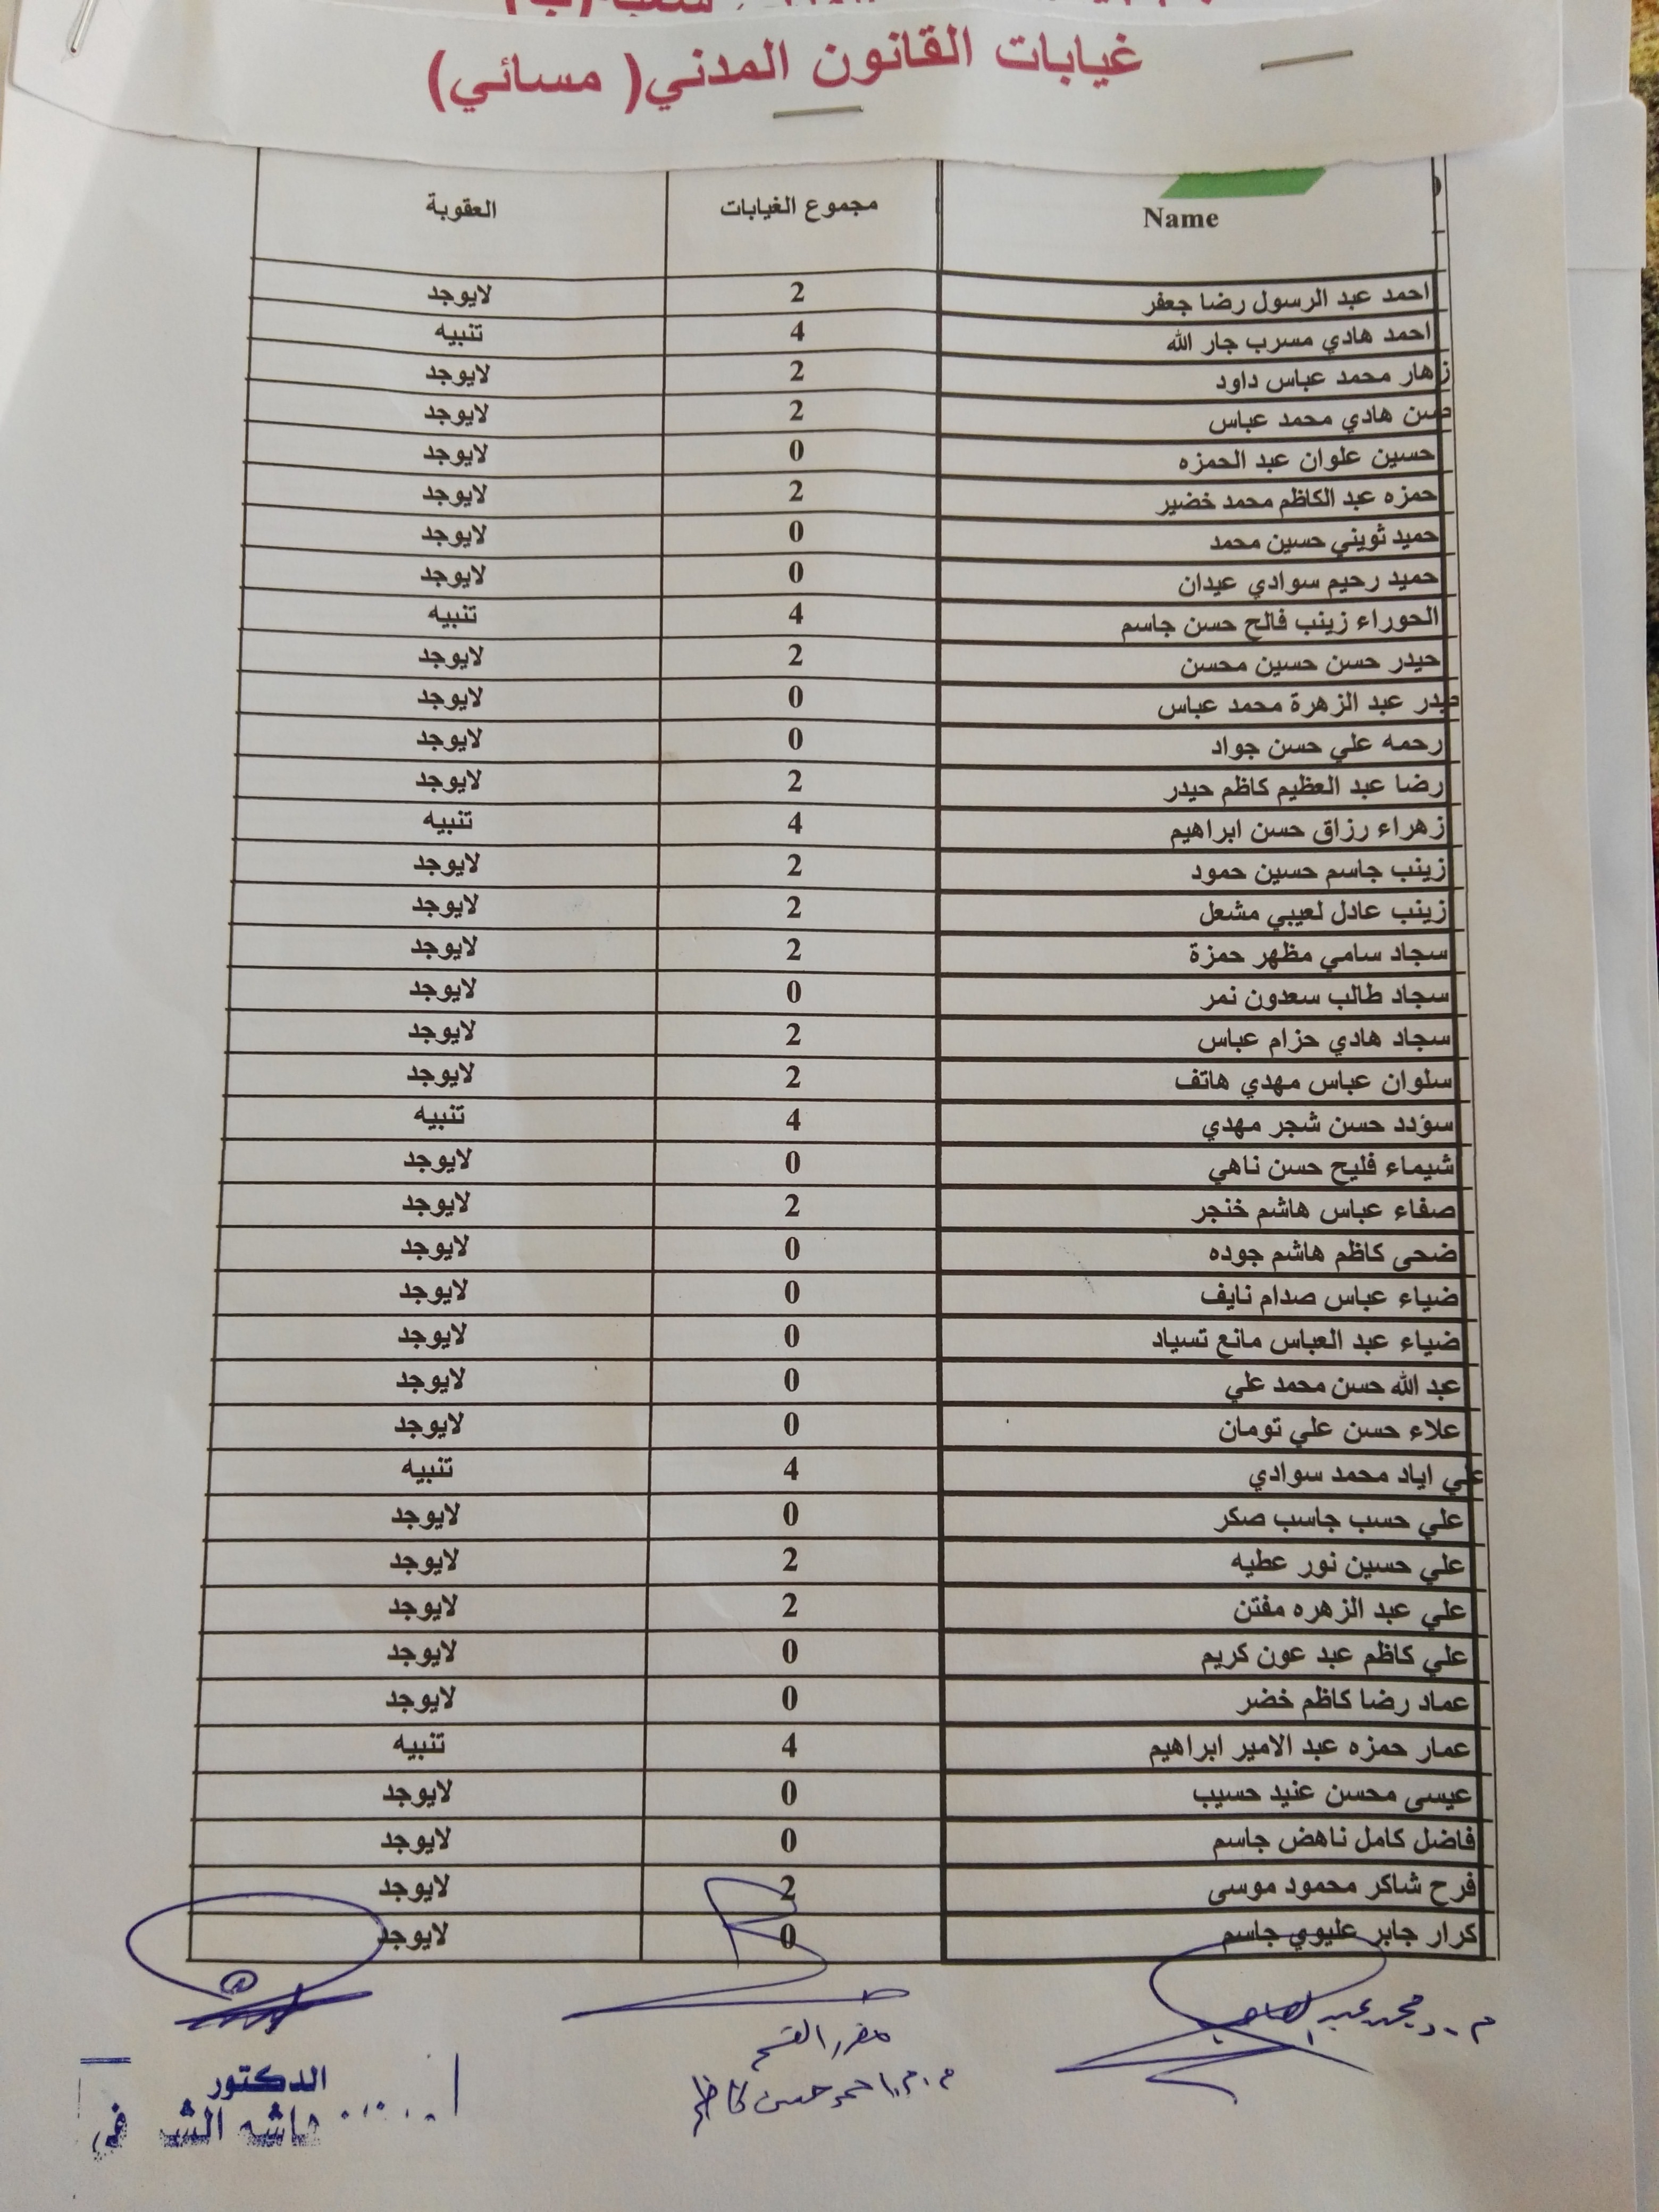 غيابات القانون المدني( مسائي)
Name مجموع الغيابات العقوبة
احمد عبد الرسول رضا جعفر 2 لايوجد
احمد هادي مسرب جار الله 4 تنبيه
زهار محمد عباس داود 2 لايوجد
هادي محمد عباس 2 لايوجد
حسين علوان عبد الحمزه 0 لايوجد
حمزه عبد الكاظم محمد خضير 2 لايوجد
حميد ثويني حسين محمد 0 لايوجد
حميد رحيم سوادي عيدان 0 لايوجد
الحوراء زينب فالح حسن جاسم 4 تنبيه
حيدر حسن حسين محسن 2 لايوجد
عبد الزهرة محمد عباس 0 لايوجد
رحمه علي حسن جواد 0 لايوجد
رضا عبد العظيم كاظم حيدر 2 لايوجد
زهراء رزاق حسن ابراهيم 4 تنبيه
زينب جاسم حسين حمود 2 لايوجد
زينب عادل لعيبي مشعل 2 لايوجد
سجاد سامي مظهر حمزة 2 لايوجد
سجاد طالب سعدون نمر 0 لايوجد
سجاد هادي حزام عباس 2 لايوجد
سلوان عباس مهدي هاتف 2 لايوجد
سؤدد حسن شجر مهدي 4 تنبيه
شيماء فليح حسن ناهي 0 لايوجد
صفاء عباس هاشم خنجر 2 لايوجد
ضحى كاظم هاشم جوده 0 لايوجد
ضياء عباس صدام نايف 0 لايوجد
ضياء عبد العباس مانع تسياد 0 لايوجد
عبد الله حسن محمد علي 0 لايوجد
علاء حسن علي تومان 0 لايوجد
علي اياد محمد سوادي 4 تنبيه
علي حسب جاسب صكر 0 لايوجد
علي حسين نور عطيه 2 لايوجد
علي عبد الزهره مفتن 2 لايوجد
علي كاظم عبد عون كريم 0 لايوجد
عماد رضا كاظم خضر 0 لايوجد
عمار حمزه عبد الامير ابراهيم 4 تنبيه
عيسى محسن عنيد حسيب 0 لايوجد
فاضل كامل ناهض جاسم 0 لايوجد
فرح شاكر محمود موسى 2 لايوجد
كرار جابر عليوي جاسم 0 لايوجد
مقرر القسم
م.م. احمد حسن كاظم
الدكتور